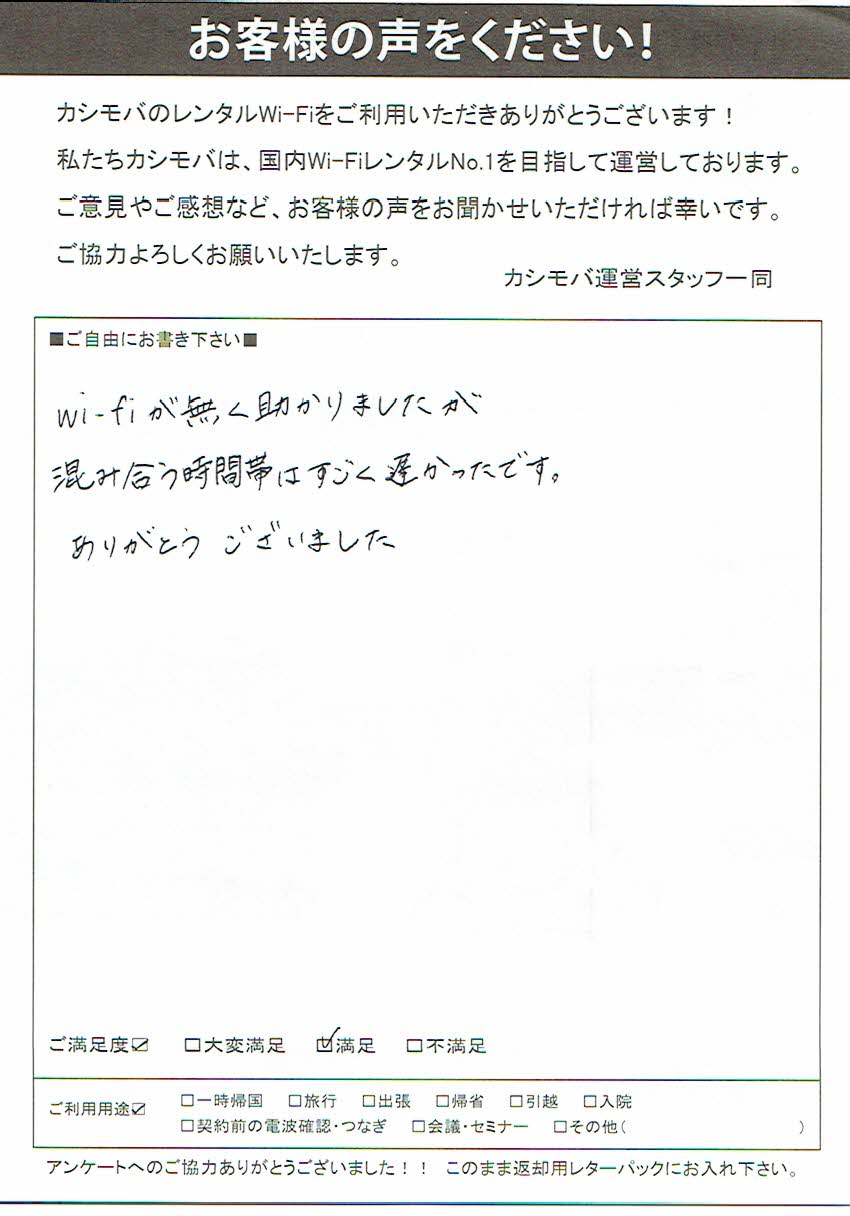 お客様の声をください!
カシモバのレンタルWi-Fiをご利用いただきありがとうございます！
私たちカシモバは、国内Wi-FiレンタルNo.1を目指して運営しております。
ご意見やご感想など、お客様の声をお聞かせいただければ幸いです。
ご協力よろしくお願いいたします。
カシモバ運営スタッフ一同
■ご自由にお書き下さい■
wi-fiが無く助かりましたが
混み合う時間帯はすごく遅かったです。
ありがとうございました
ご満足度☑ □大変満足 ☑満足 □不満足
ご利用用途☑ □一時帰国 □旅行 □出張 □帰省 □引越 □入院
□契約前の電波確認・つなぎ □会議・セミナー □その他( )
アンケートへのご協力ありがとうございました！！ このまま返却用レターパックにお入れ下さい。